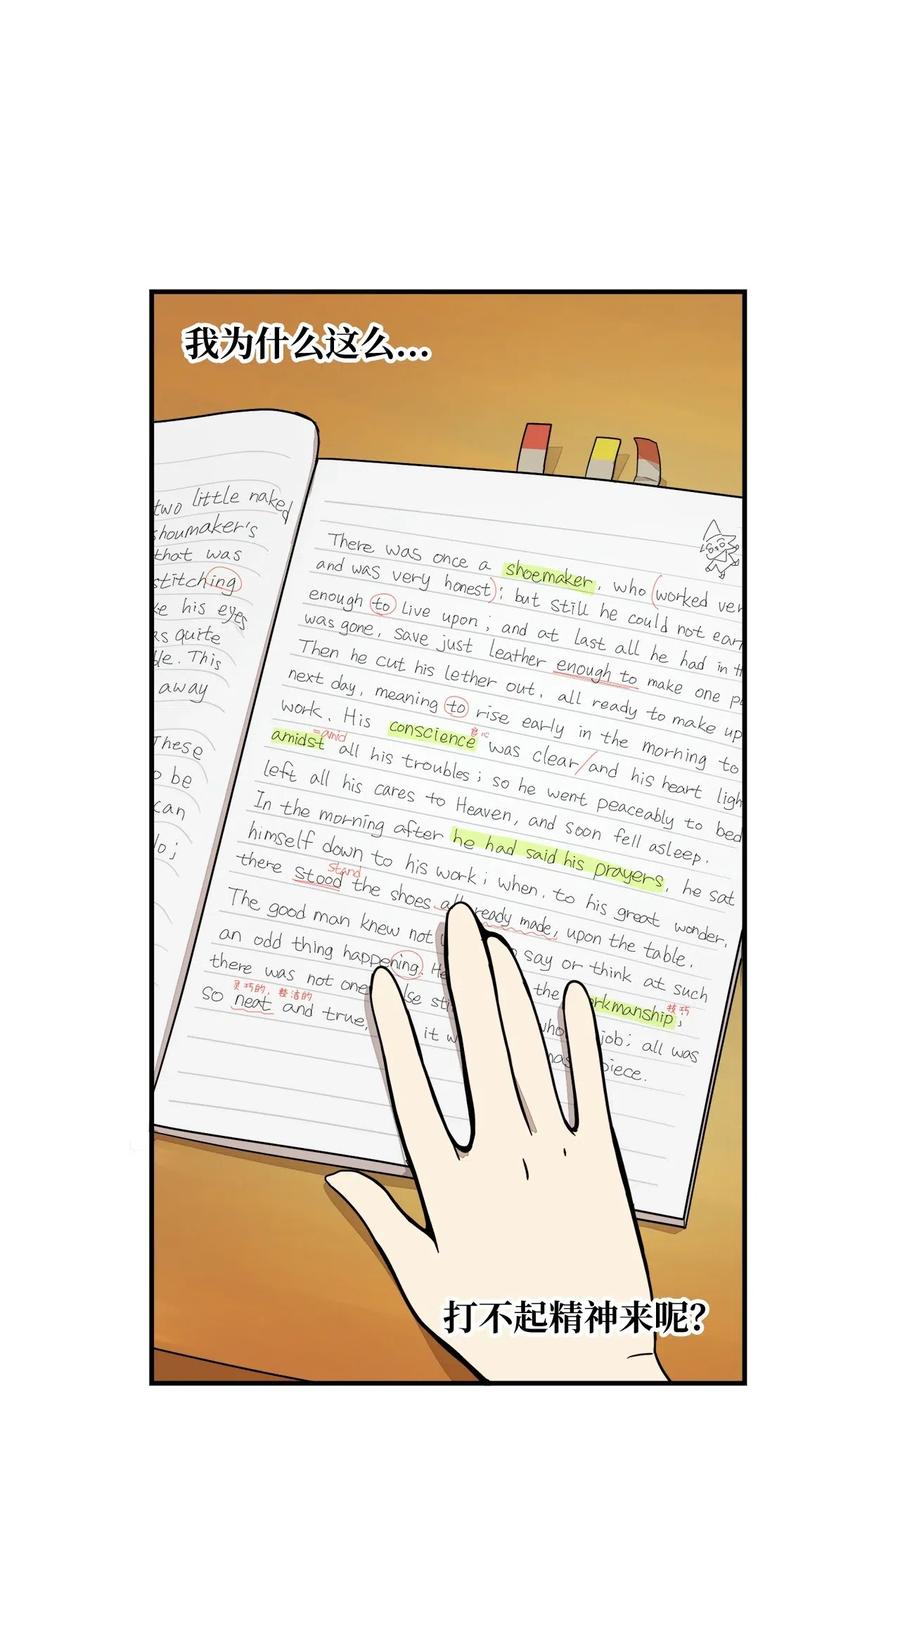 我为什么这么...
two little naked
shoumaker's
that was
stitching
his eyes
quite
This
away
These
be
can
There was once a shoemaker, who worked
and was very honest; but still he could not
enough to live upon; and at last all he had in
was gone, save just leather enough to make one
Then he cut his lether out, all ready to make up
next day, meaning to rise early in the morning to
work. His conscience was clear/and his heart
=amid
amidst all his troubles; so he went peaceably to bed
left all his cares to Heaven, and soon fell asleep.
In the morning after he had said his prayers, he sat
himself down to his work; when, to his great wonder,
stand
there stood the shoes all ready made, upon the table.
The good man knew not say or think at such
an odd thing happening. the
技巧
there was not one
灵巧的, 整洁的
so neat and true, it job; all was
打不起精神来呢?